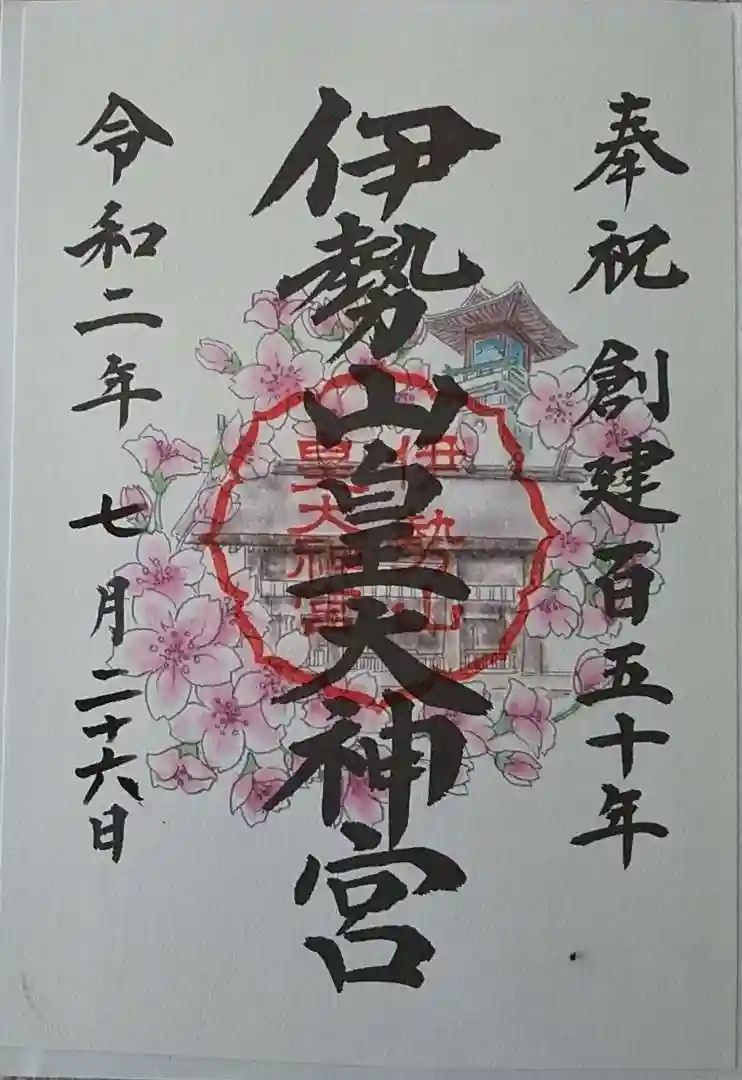 奉祝 創建百五十年
伊勢山皇大神宮
伊勢山
皇大神宮
令和二年 七月二十六日